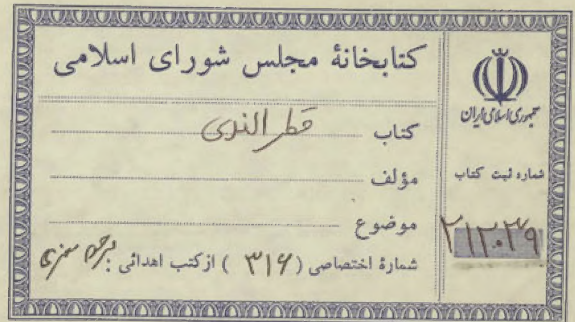 کتابخانهٔ مجلس شورای اسلامی
کتاب قطر الندی
مؤلف
موضوع
شمارهٔ اختصاصی (۳۱۶) از کتب اهدائی :
جمهوری اسلامی ایران
شماره ثبت کتاب
۲۱۲۰۳۹